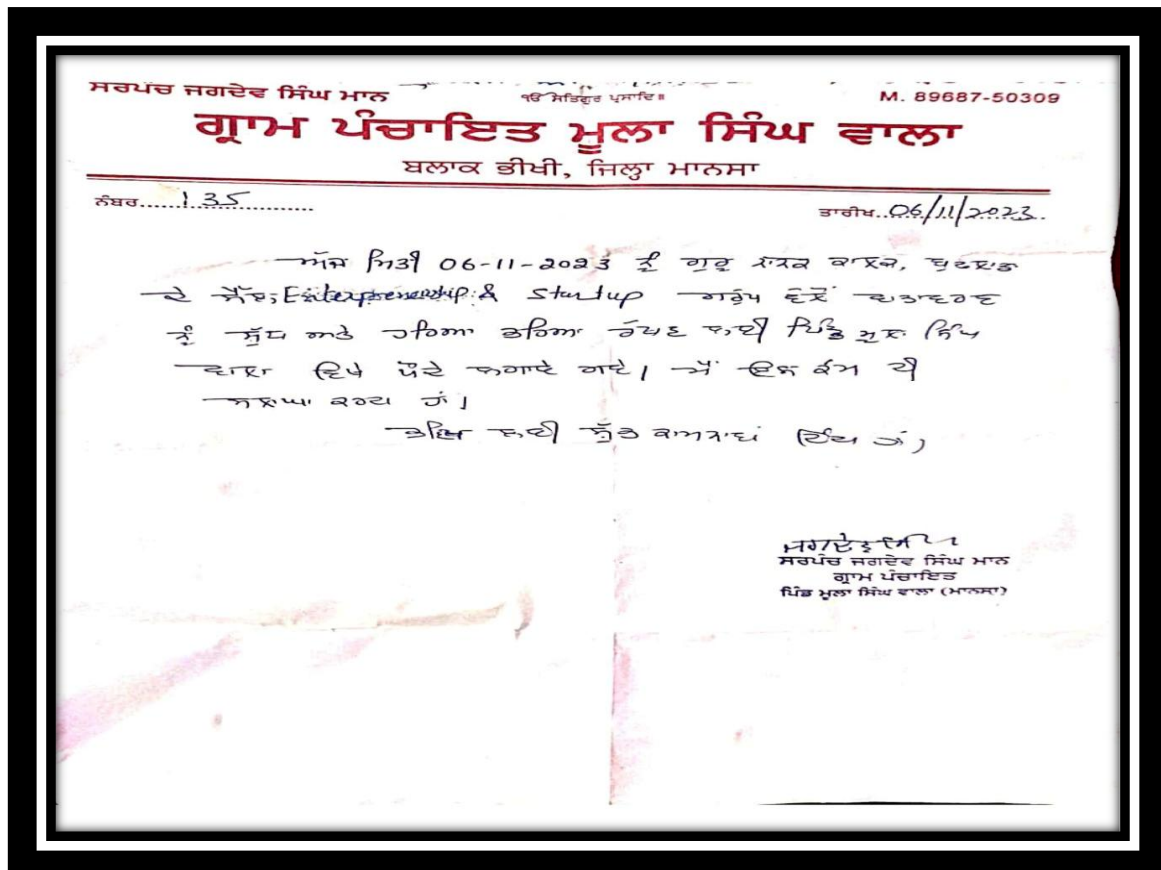 ਸਰਪੰਚ ਜਗਦੇਵ ਸਿੰਘ ਮਾਨ
ੴ ਸਤਿਗੁਰ ਪ੍ਰਸਾਦਿ॥
M. 89687-50309
ਗ੍ਰਾਮ ਪੰਚਾਇਤ ਮੂਲਾ ਸਿੰਘ ਵਾਲਾ
ਬਲਾਕ ਭੀਖੀ, ਜਿਲ੍ਹਾ ਮਾਨਸਾ
ਨੰਬਰ......135..............
ਤਾਰੀਖ..06/11/2023..
ਅੱਜ ਮਿਤੀ 06-11-2023 ਨੂੰ ਗੁਰੂ ਨਾਨਕ ਕਾਲਜ, ਬੁਢਲਾਡਾ
ਦੇ Enterpreneurship & Startup ਗਰੁੱਪ ਵੱਲੋਂ ਵਾਤਾਵਰਣ
ਨੂੰ ਸ਼ੁੱਧ ਅਤੇ ਹਰਿਆ ਭਰਿਆ ਰੱਖਣ ਲਈ ਪਿੰਡ ਮੂਲਾ ਸਿੰਘ
ਵਾਲਾ ਵਿਖੇ ਪੌਦੇ ਲਗਾਏ ਗਏ। ਮੈਂ ਇਸ ਕੰਮ ਦੀ
ਸ਼ਲਾਘਾ ਕਰਦਾ ਹਾਂ।
ਭਵਿੱਖ ਲਈ ਸ਼ੁੱਭ ਕਾਮਨਾਵਾਂ (ਦਿੰਦਾ ਹਾਂ)
ਸਰਪੰਚ ਜਗਦੇਵ ਸਿੰਘ ਮਾਨ
ਗ੍ਰਾਮ ਪੰਚਾਇਤ
ਪਿੰਡ ਮੂਲਾ ਸਿੰਘ ਵਾਲਾ (ਮਾਨਸਾ)